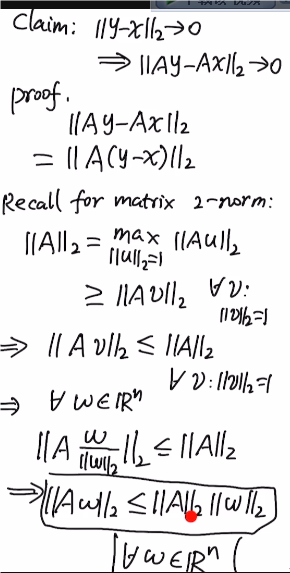 Claim: ||y-x||₂→0
⟹ ||Ay-Ax||₂→0
proof.
||Ay-Ax||₂
= ||A(y-x)||₂
Recall for matrix 2-norm:
||A||₂ = max_{||u||₂=1} ||Au||₂
≥ ||Av||₂ ∀v: ||v||₂=1
⇒ ||Av||₂ ≤ ||A||₂
∀v: ||v||₂=1
⇒ ∀w∈ℝⁿ
||A w/||w||₂ ||₂ ≤ ||A||₂
⇒ ||Aw||₂ ≤ ||A||₂ ||w||₂
∀w∈ℝⁿ (